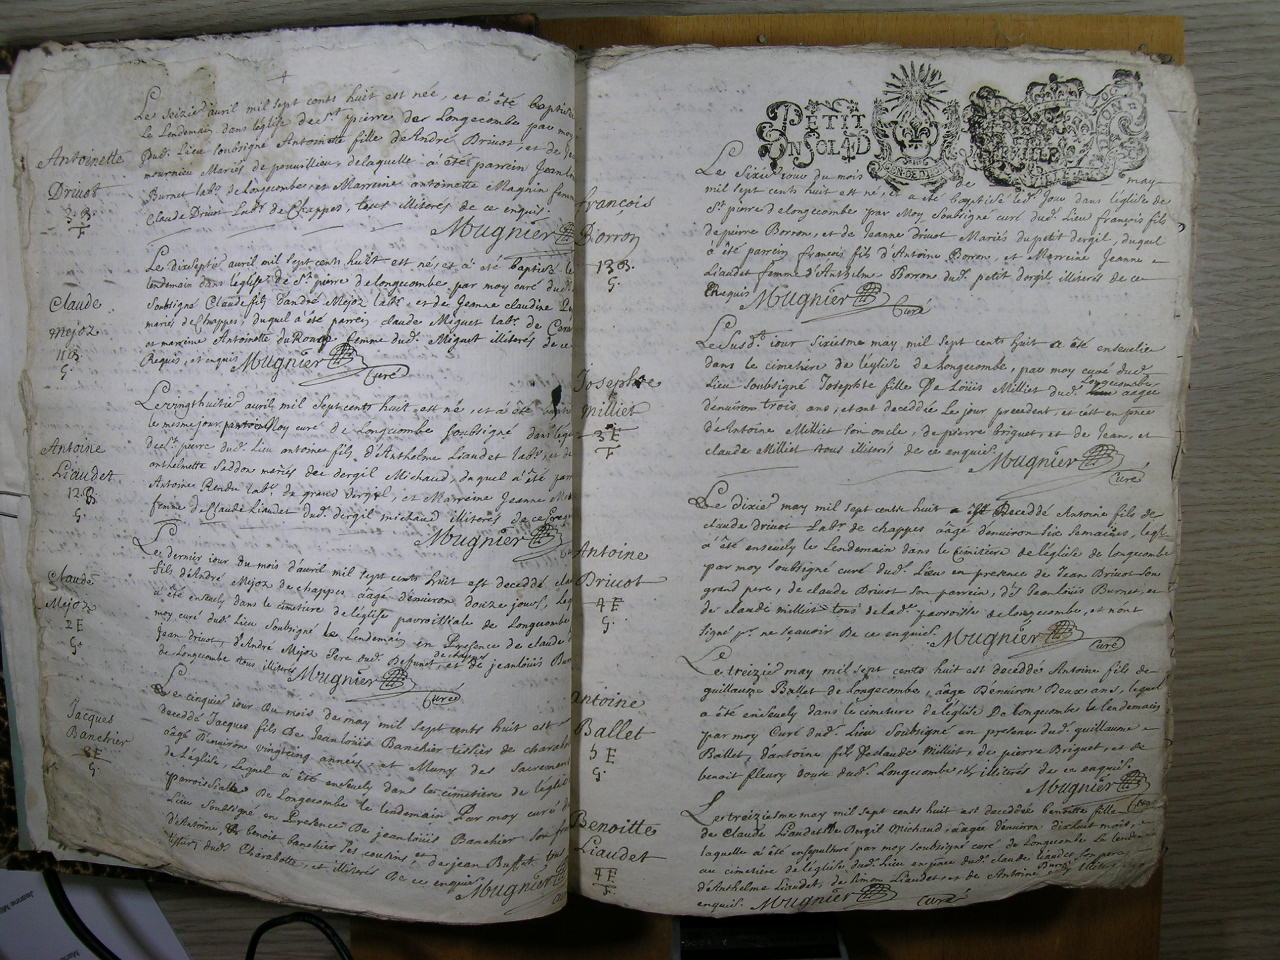 Le seizie avril mil sept cents huit est née, et a été baptisée
le lendemain dans l'église de St. pierre de Longecombe par moy
dud. Lieu soubsigné Antoinette fille d'André Drivot, et de
mariés de laquelle a été parrein Jean
Burnet labr. de Longecombe, et Marreine antoinette Magnin femme
Claude Drivot Labr. de Chappes, tous illiterés de ce enquis.
Mugnier
Antoinette
Drivot
2 B
F
Le dixsepte avril mil sept cents huit est né, et a été baptisé le
lendemain dans leglise de St. pierre de longecombe, par moy curé dud.
soubsigné Claude fils d'andré Mejoz labr. et de Jeanne claudine
mariés de Chappes, duquel a été parrein claude Miguet labr. de
et marreine Antoinette du femme dud. Miguet illiterés de ce
Requis, et enquis Mugnier
Curé
Claude
mejoz
11 B
G.
Le vingthuitie avril, mil sept cents huit est né, et a été
le mesme jour par Moy curé de Longecombe soubsigné dans leglise
de St. pierre dud. Lieu antoine fils d'Anthelme Liaudet labr. et de
anthelmette Seddon mariés de dergil Michaud, duquel a été parrein
Antoine Rendu labr. du grand dergil, et Marreine Jeanne
femme de Claude Liaudet dud. dergil michaud illiterés de ce
Mugnier
Antoine
Liaudet
12 B
G.
Le dernier jour du mois d'avril mil sept cents huit est deceddé
fils d'André Mejoz de chappes âagé denuiron douze jours,
a été enseuely dans le cimetiere de l'église parroissiale de Longecombe
moy curé dud. Lieu Soubsigné le Lendemain, en Presence de claude
Jean drivot, d'André Mejoz Pere dud. Defunct, et de jeanlouis
de chappes
de Longecombe tous illiterés Mugnier
Curé
Claude
Mejoz
2 E
G.
Le cinquie jour Du mois de may mil sept cents huit est
deceddé Jacques fils De Jeanlouis Banchier tissier de
âagé Denuiron vingtcinq années, et Muny des Sacremens
de l'église, Lequel a été enseuely dans le cimetiere de leglise
parroissialle De Longecombe le lendemain Par moy curé
Lieu Soubsigné en Presence De jeanlouis Banchier son
d'Antoine, et benoit banchier ses cousins et de jean Buffat tous
dud. et illiterés De ce enquis Mugnier
Jacques
Banchier
3 E
G.
PETIT
UN SOL 4D
Le sixie jour du mois de may
mil sept cents huit est né, et a été baptisé led. Jour dans l'église de
St. pierre de longecombe par Moy Soubsigné curé dud. Lieu françois fils
de pierre Borron, et de Jeanne drivot Mariés du petit dergil, duquel
a été parrein françois fils d'Antoine Borron, et Marreine Jeanne
Liaudet femme d'Anthelme Borron du petit dergil illiterés de ce
Enquis Mugnier
Curé
françois
Borron
13 B.
G.
Le Susd. jour Sixiesme may mil sept cents huit a été enseuelie
dans le cimetiere de l'église de Longecombe, par moy curé dud.
Longecombe
Lieu Soubsigné Josephte fille De Louis Milliet dud. aâgée
d'enuiron trois ans, etant deceddée Le jour precedent, et c'est en pnce
de Antoine Milliet son oncle, de pierre briguet, et de Jean, et
claude Milliet tous illiterés de ce enquis. Mugnier
Curé
Josephte
Milliet
3 E
F
Le dixie may mil sept cents huit est Deceddé Antoine fils de
claude drivot Labr. de chappes aâgé denuiron six semaines, leql
a été enseuely le Lendemain dans le Cimetiere de l'église de longecombe
par moy soubsigné curé dud. Lieu en presence de Jean Drivot son
grand pere, de claude Drivot son parrein, de Jean louis Burnet, et
de claude milliet tous de lad. parroisse de longecombe, et n'ont
signé pr. ne sçauoir De ce enquis. Mugnier
Curé
Antoine
Drivot
4 E
G.
Le treizie may mil sept cents huit est deceddé Antoine fils de
guillaume Ballet de Longecombe, aâgé Denuiron Deux ans, lequel
a été enseuely dans le cimetiere de l'église De longecombe le lendemain
par moy Curé dud. Lieu Soubsigné en presence dud. guillaume
Ballet, d'antoine fil de claude Milliet, de pierre Briguet, et de
benoit fleury tous dud. Longecombe illiterés de ce enquis.
Mugnier
Curé
antoine
Ballet
5 E
G.
Le treiziesme may mil sept cents huit est deceddée benoitte fille
de Claude Liaudet de Dergil Michaud, aâgée denuiron dixhuit mois,
laquelle a été ensepulturé par moy soubsigné curé de Longecombe Le lendemain
au cimetiere de l'église dud. Lieu en pnce dud. claude liaudet son pere
d'Anthelme Liaudet, de Simon Liaudet, et de Antoine
enquis. Mugnier Curé
Benoitte
Liaudet
4 E
F